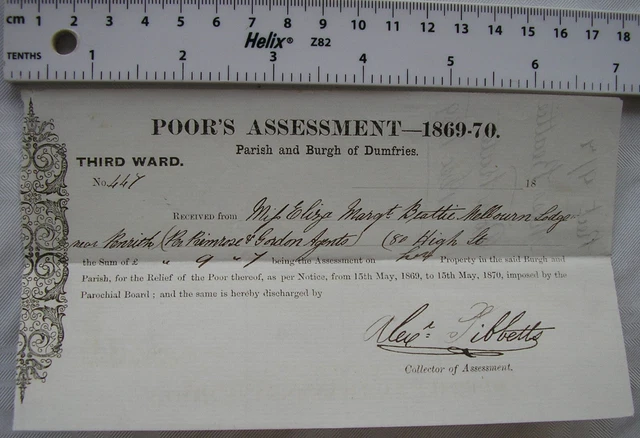 cm 1 2 3 4 5 6 7 8 9 10 11 12 13 14 15 16 17 18
Helix® Z82
TENTHS 1 2 3 4 5 6 7
POOR'S ASSESSMENT—1869-70.
Parish and Burgh of Dumfries.
THIRD WARD.
No. 447 18
RECEIVED from Miss Eliza Margt. Beattie Melbourn Lodge
near (Per Primrose & Gordon Agents) (80 High St
the Sum of £ " 9 " 7 being the Assessment on her Property in the said Burgh and
Parish, for the Relief of the Poor thereof, as per Notice, from 15th May, 1869, to 15th May, 1870, imposed by the
Parochial Board; and the same is hereby discharged by
Alexr. Tibbetts
Collector of Assessment.